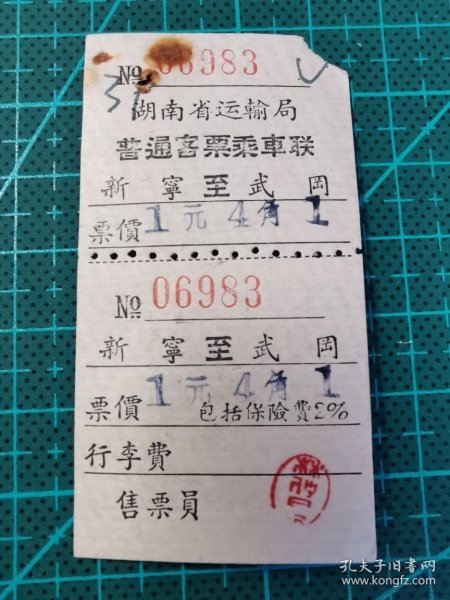 № 06983
湖南省运输局
普通客票乘車联
新寧至武岡
票價 1元4角1
№ 06983
新寧至武岡
票價 1元4角1 包括保險費2%
行李費
售票員
孔夫子旧书网
www.kongfz.com